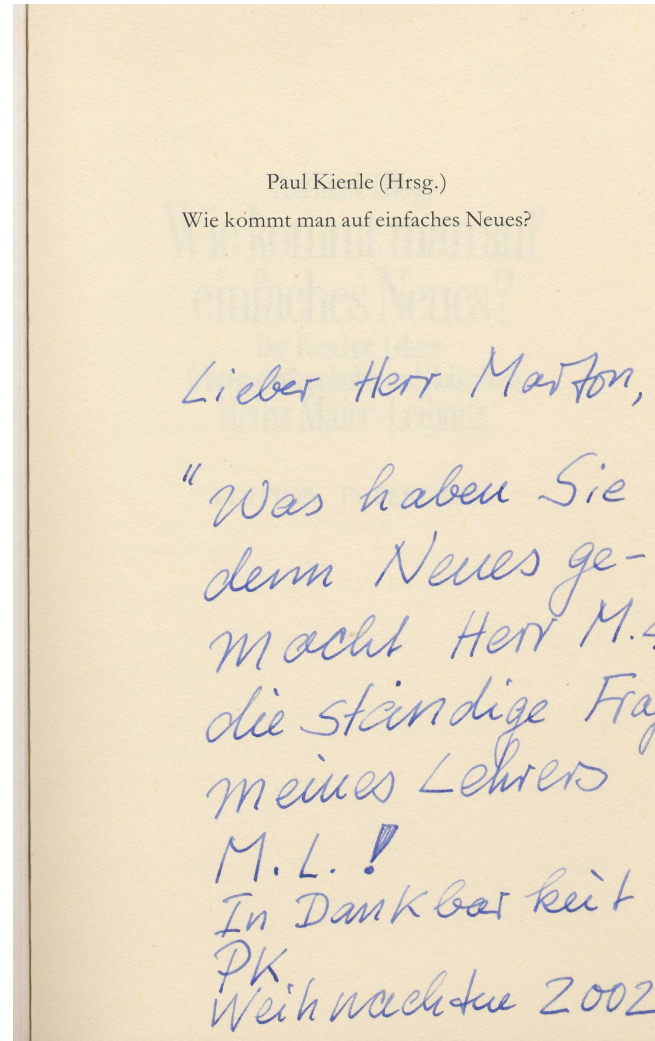 Paul Kienle (Hrsg.)
Wie kommt man auf einfaches Neues?
Lieber Herr Marton,
"Was haben Sie
denn Neues ge-
macht Herr M.
die ständige Frag
meines Lehrers
M.L.!
In Dankbarkeit
PK
Weihnachten 2002